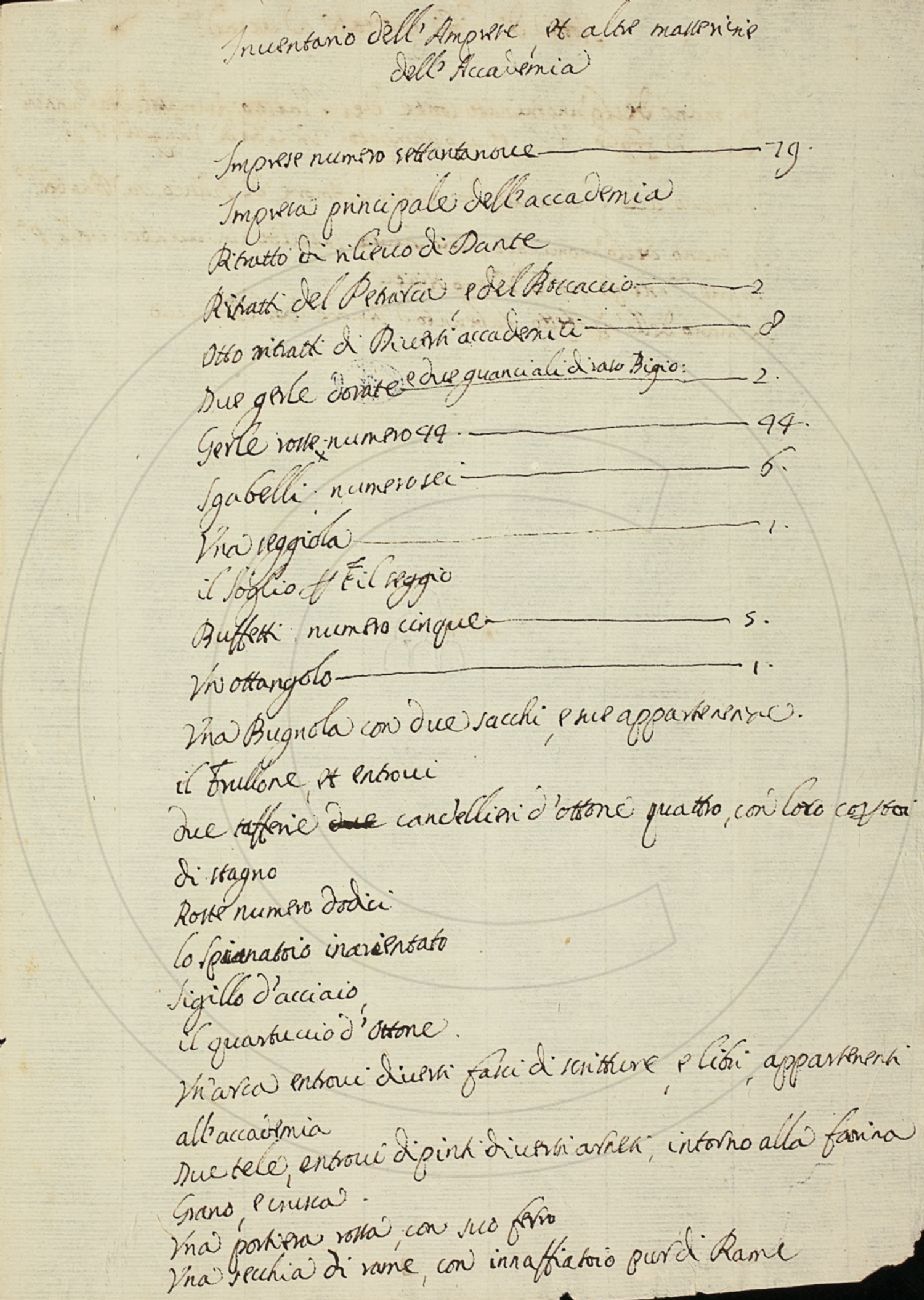 Inventario dell'Imprese, et altre masserizie
dell'Accademia
Imprese numero settantanove 79.
Impresa principale dell'accademia
Ritratto di rilievo di Dante
Ritratti del Petrarca, e del Boccaccio 2
Otto ritratti di Diversi accademici 8
Due gerle dorate e due guanciali di raso Bigio: 2.
Gerle rosse numero 44. 44.
Sgabelli numero sei 6.
Una seggiola 1.
il soglio il seggio
Buffetti numero cinque 5.
Un ottangolo 1.
Una Bugnola con due sacchi, e sue appartenenze.
il Frullone, et entrovi
due tafferie due candellieri d'ottone quattro, con loro
di stagno
Roste numero dodici
lo Spianatoio inarientato
Sigillo d'acciaio,
il quartuccio d'Ottone.
Un'arca entrovi diversi fasci di scritture, e libri, appartenenti
all'accademia
Due tele, entrovi dipinti diversi arnesi, intorno alla farina
Grano, e crusca.
Una portiera rossa, con suo ferro
Una secchia di rame, con innaffiatoio pur di Rame